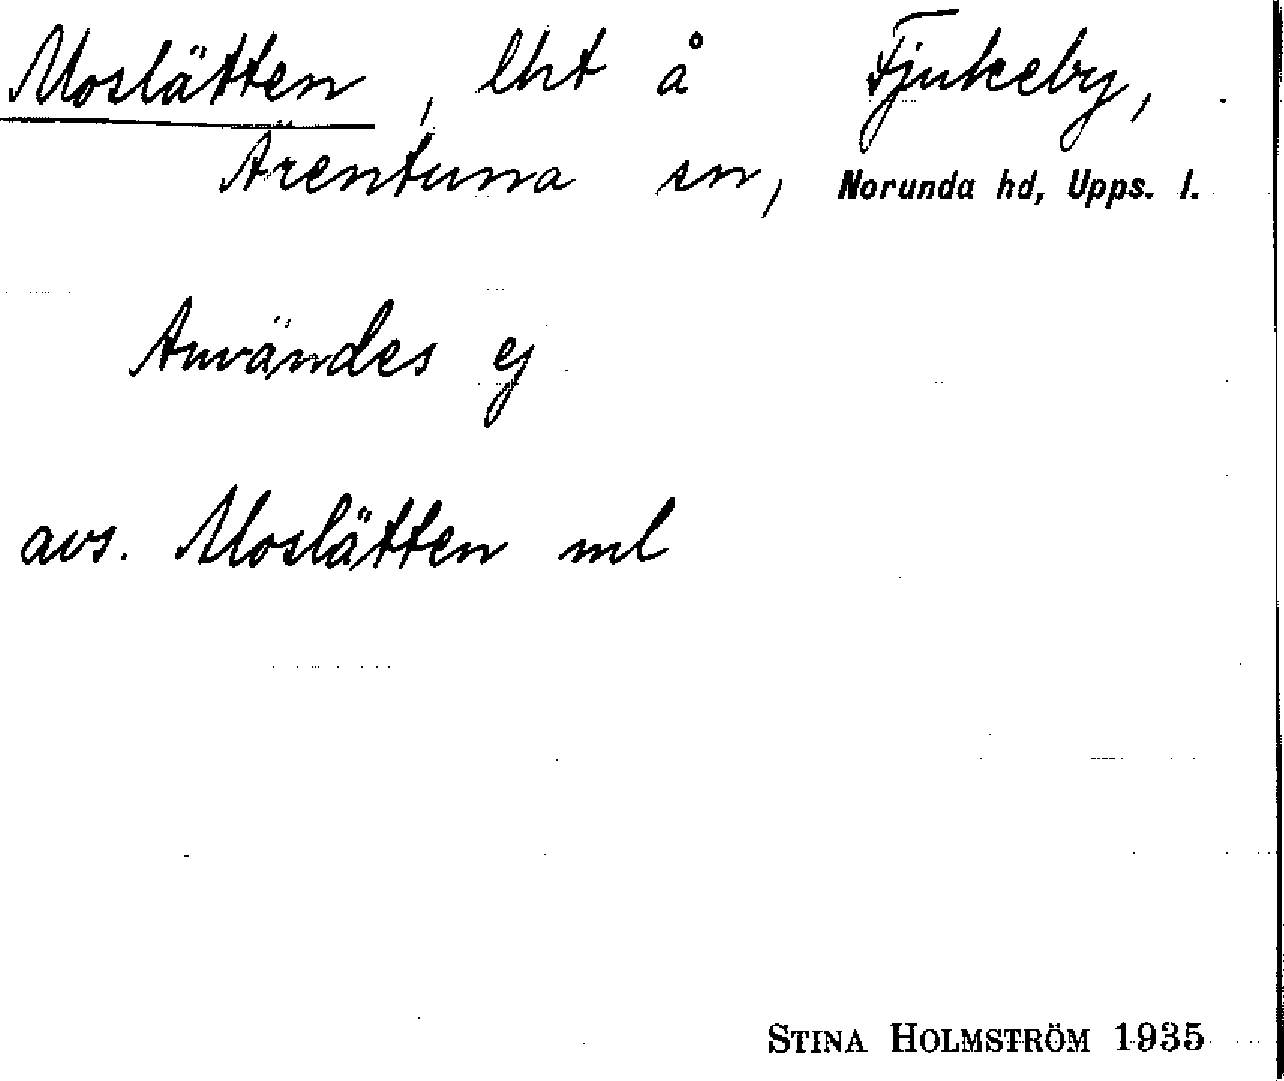 Moslätten, lht å Fjukeby,
Ärentuna sn, Norunda hd, Upps. l.
Användes ej
avs. Moslätten ml
STINA HOLMSTRÖM 1935